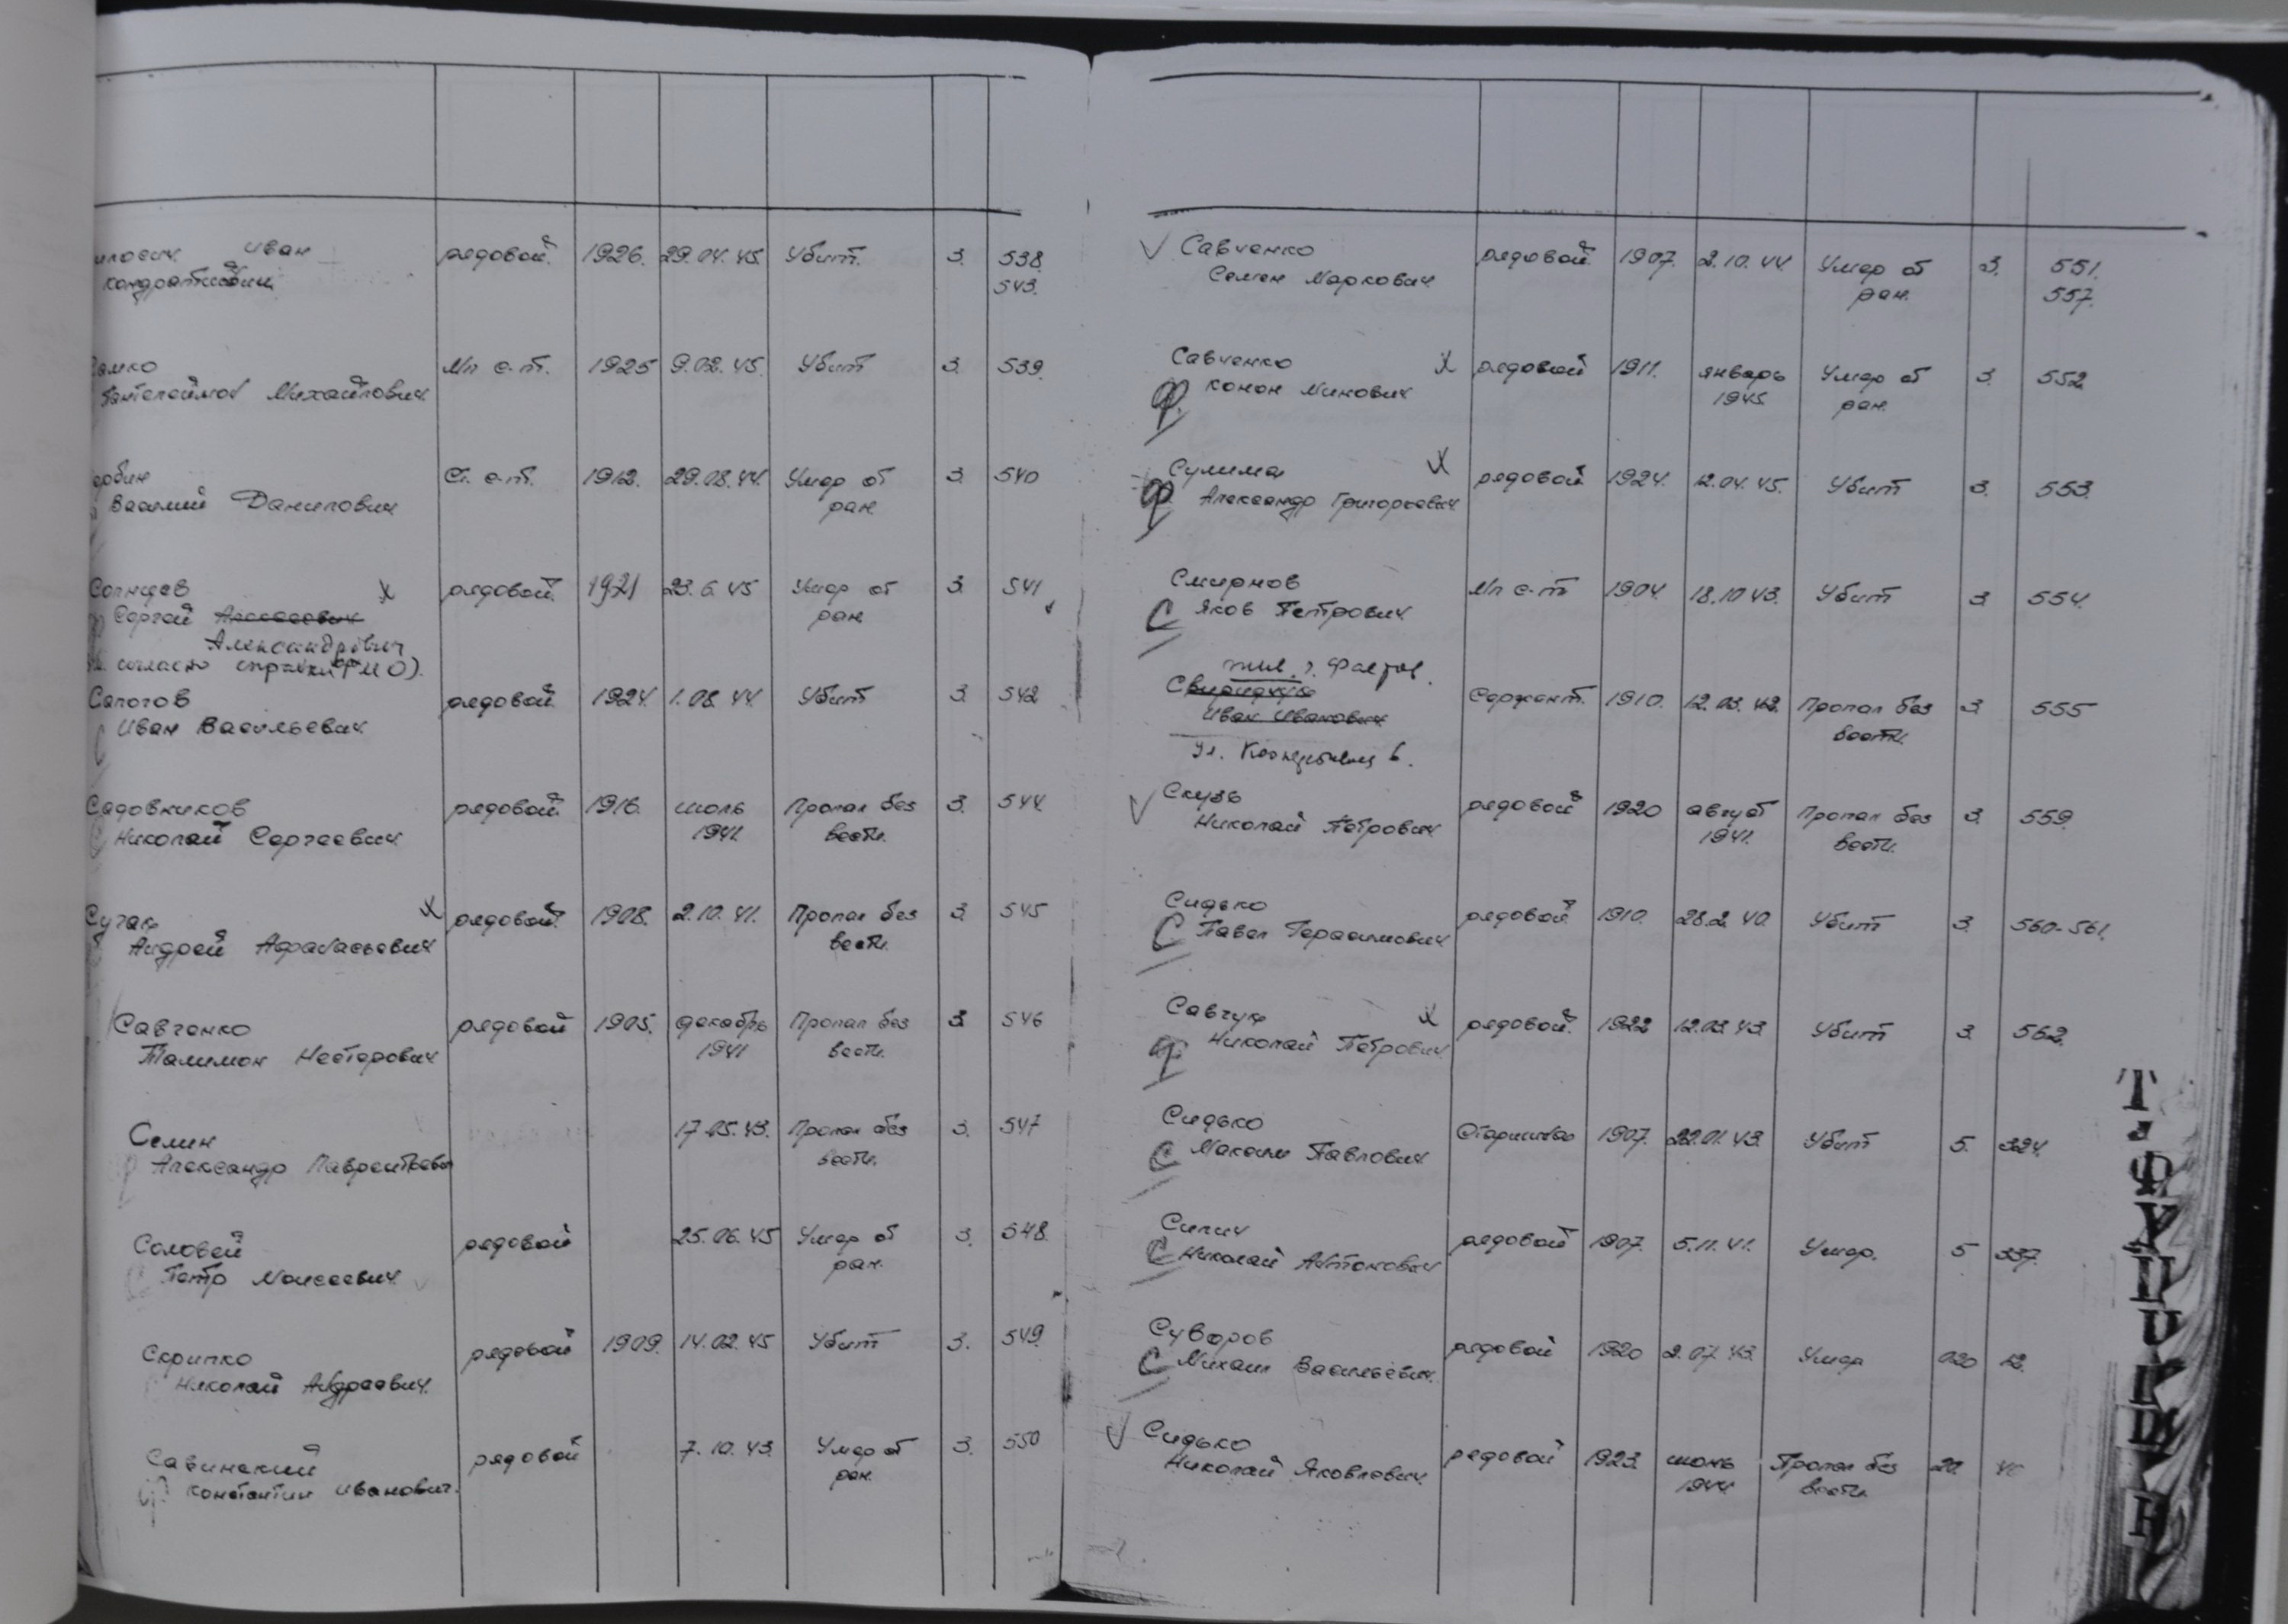 Иван рядовой 1926. 29.04.45. Убит. 3. 538.
Кондратьевич 543.
Мл с-т. 1925 9.02.45. Убит 3. 539.
Пантелеймон Михайлович
Ст. с-т. 1912. 29.08.44. Умер от 3. 540
Василий Данилович ран.
Солнцев х рядовой 1921 23.6.45 Умер от 3. 541
Сергей Алексеевич ран.
Александрович
согласно справки МО).
Сапогов рядовой 1924. 1.08.44. Убит 3. 542
С Иван Васильевич
Садовников рядовой 1916. июль Пропал без 3. 544.
С Николай Сергеевич 1941. вести.
Сугак х рядовой 1908. 2.10.41. Пропал без 3. 545
Андрей Афанасьевич вести.
Савченко рядовой 1905. декабрь Пропал без 3. 546
Талимон Нестерович 1941 вести.
Семин 17.05.43. Пропал без 3. 547
Александр Лаврентьевич вести.
Соловей рядовой 25.06.45 Умер от 3. 548.
Петр Моисеевич ран.
Скрипко рядовой 1909. 14.02.45 Убит 3. 549.
Николай Андреевич.
Савинский рядовой 7.10.43. Умер от 3. 550
Константин Иванович. ран.
Савченко рядовой 1907. 2.10.44. Умер от 3. 551.
Семен Маркович ран. 557.
Савченко х рядовой 1911. январь Умер от 3. 552
ф Конон Минович 1945. ран.
Сулима х рядовой 1924. 12.04.45. Убит 3. 553.
ф Александр Григорьевич
Смирнов Мл с-т 1904. 18.10.43. Убит 3. 554.
С Яков Петрович
г. Фастов.
Свиридчук Сержант. 1910. 12.03.42. Пропал без 3. 555
Иван Иванович вести.
ул. 6.
Скузь рядовой 1920 август Пропал без 3. 559.
Николай Петрович 1941. вести.
Сидько рядовой 1910. 28.2.40. Убит 3. 560-561.
С Павел Герасимович
Савчук х рядовой 1922 12.03.43 Убит 3. 562.
ф Николай Петрович
Сидько Старшина 1907. 22.01.43. Убит 5. 324.
С Максим Павлович
Силич рядовой 1907. 5.11.41. Умер. 5 337.
С Николай Антонович
Суворов рядовой 1920 2.07.43. Умер 12.
С Михаил Васильевич
Сидько рядовой 1923. июнь Пропал без
Николай Яковлевич 1944. вести